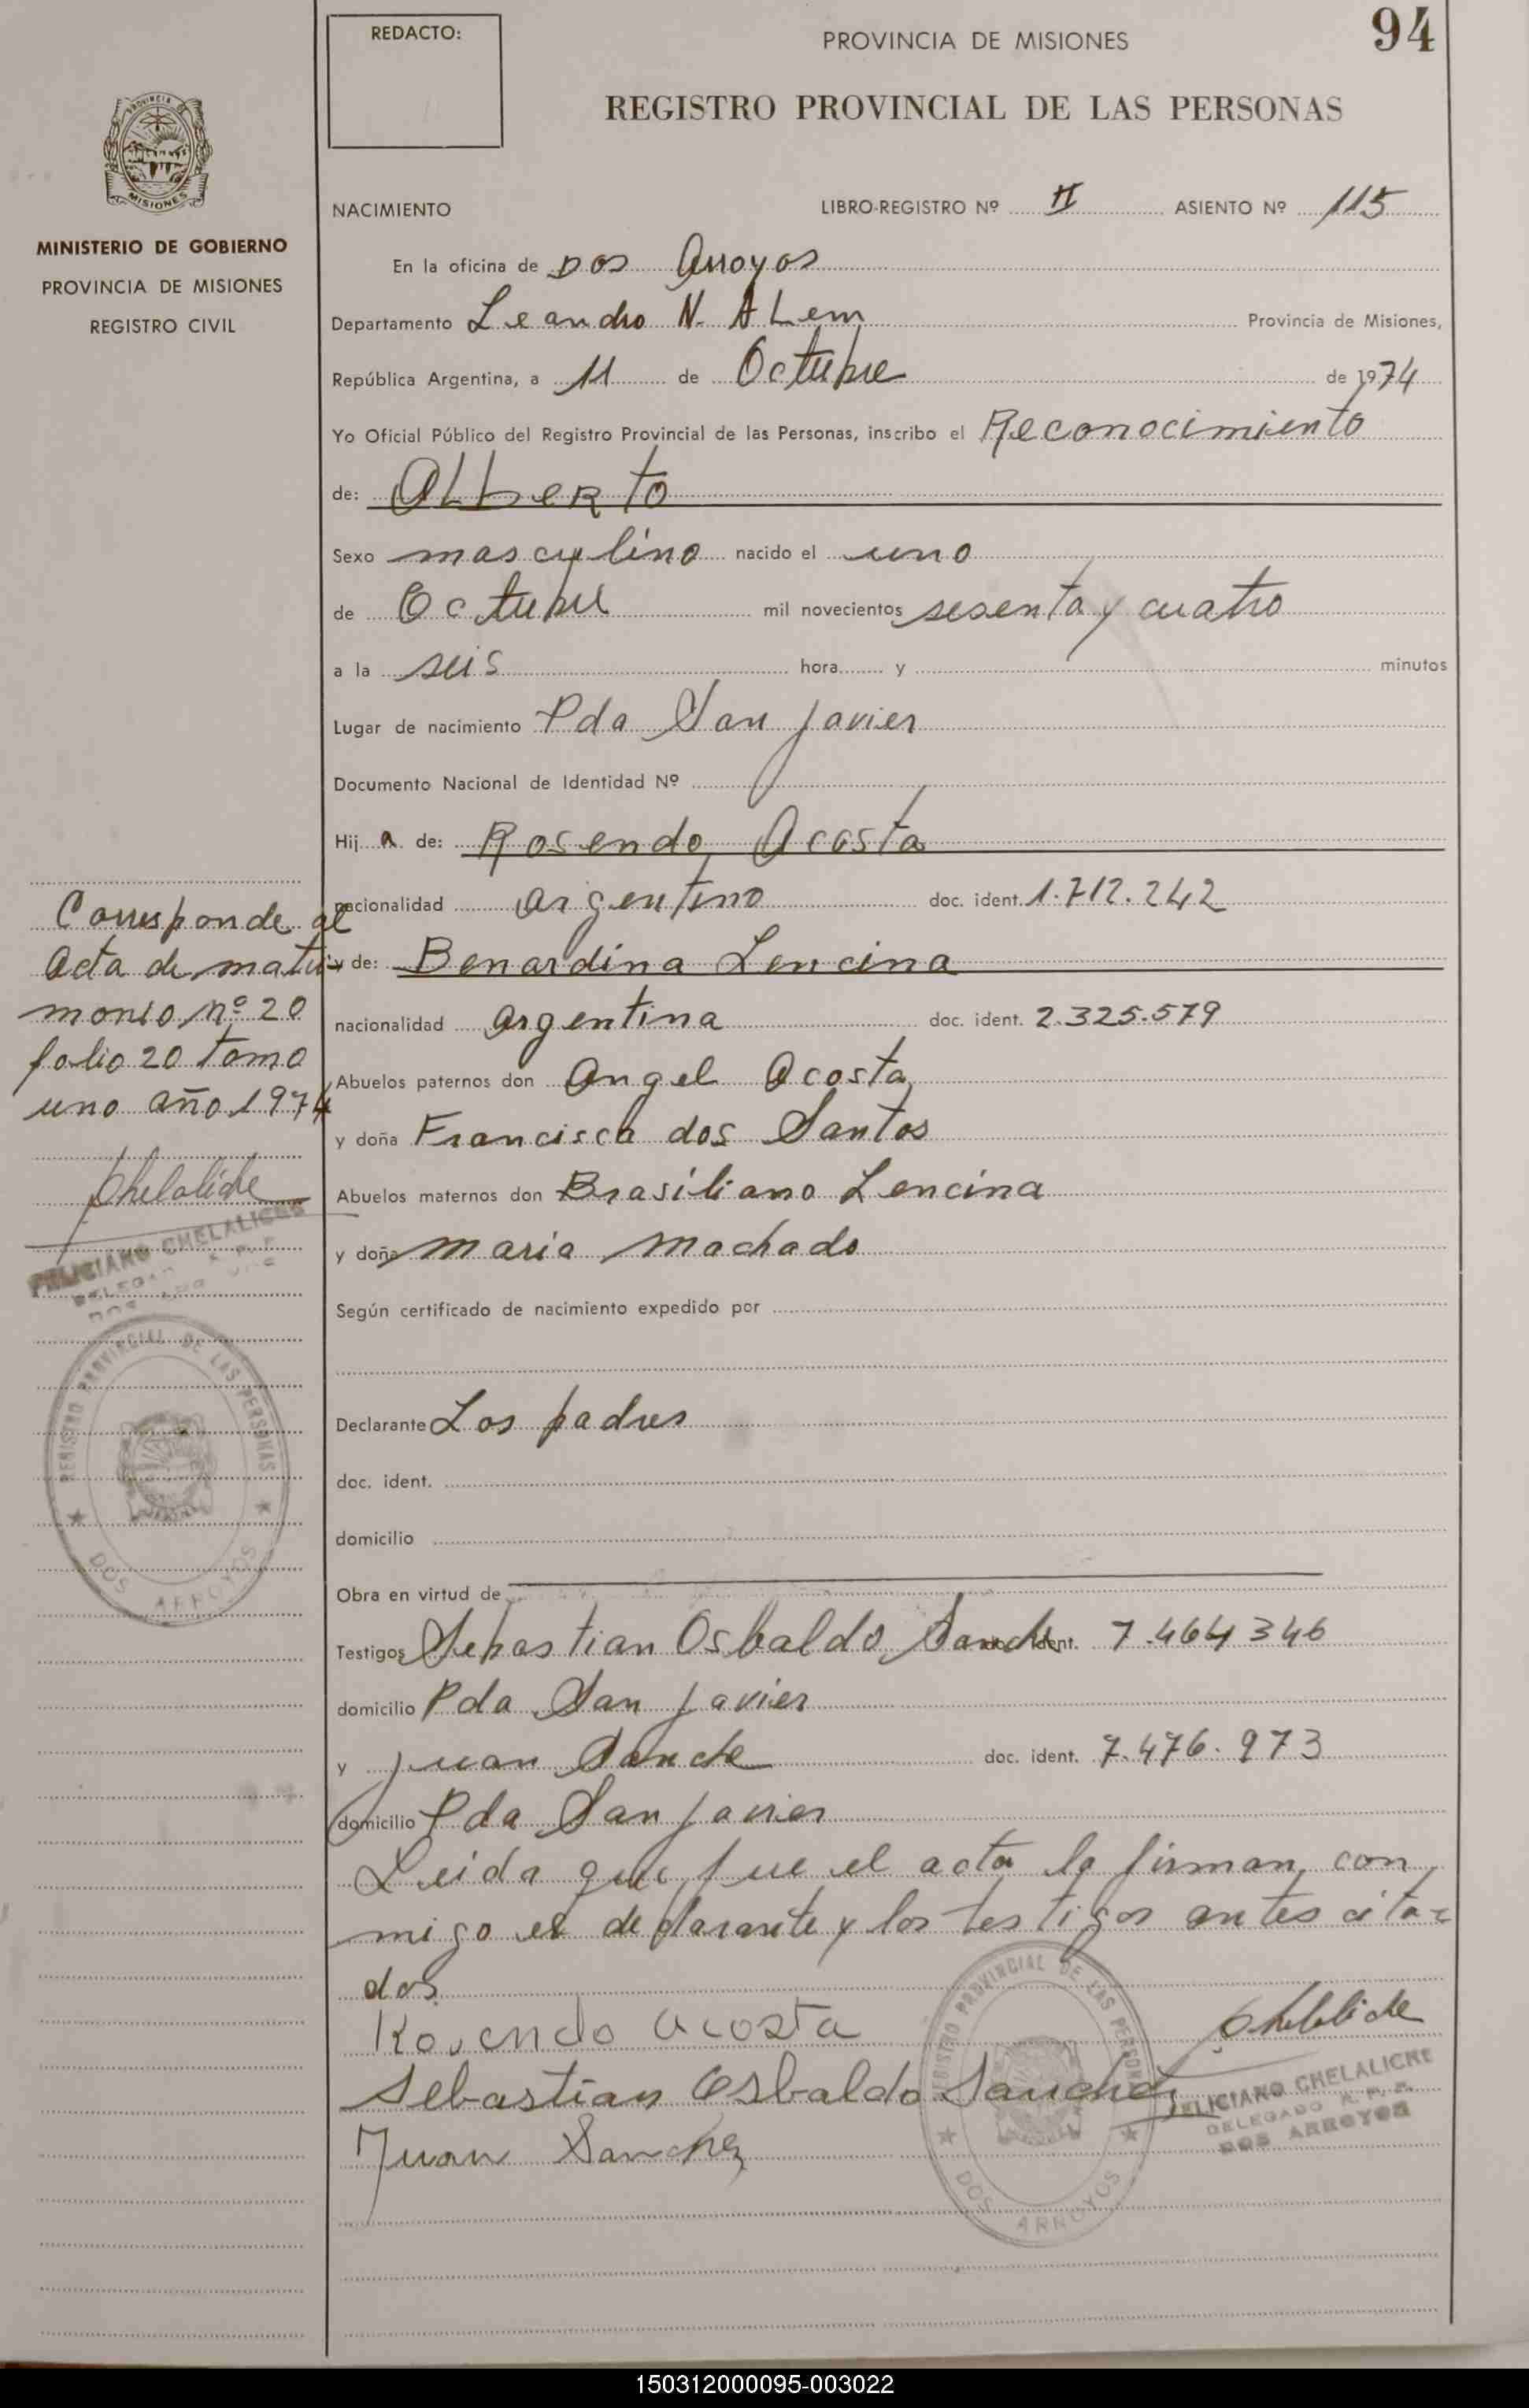 REDACTO:
PROVINCIA DE MISIONES
94
REGISTRO PROVINCIAL DE LAS PERSONAS
PROVINCIA DE
MISIONES
MINISTERIO DE GOBIERNO
PROVINCIA DE MISIONES
REGISTRO CIVIL
NACIMIENTO LIBRO-REGISTRO Nº II ASIENTO Nº 115
En la oficina de Dos Arroyos
Departamento Leandro N. ALem Provincia de Misiones,
República Argentina, a 11 de Octubre de 1974
Yo Oficial Público del Registro Provincial de las Personas, inscribo el Reconocimiento
de: ALbeRto
Sexo masculino nacido el uno
de Octubre mil novecientos sesenta y cuatro
a la seis hora y minutos
Lugar de nacimiento Pda San Javier
Documento Nacional de Identidad Nº
Hij a de: Rosendo Acosta
nacionalidad argentino doc. ident. 1.712.242
y de: Benardina Lencina
nacionalidad argentina doc. ident. 2.325.579
Abuelos paternos don Angel Acosta
y doña Francisca dos Santos
Abuelos maternos don Brasiliano Lencina
y doña maria machado
Según certificado de nacimiento expedido por
Declarante Los padres
doc. ident.
domicilio
Obra en virtud de
Testigos Sebastian Osbaldo Sanche doc. ident. 7.464346
domicilio Pda San Javier
y Juan Sanche doc. ident. 7.476.973
domicilio Pda San Javier
Leida que fue el acta la firman con
migo el declarante y los testigos antes cita=
dos.
Rosendo acosta
Sebastian Osbaldo Sanchez
Juan Sanchez
Chelaliche
FELICIANO CHELALICHE
DELEGADO R. P. P.
DOS ARROYOS
REGISTRO PROVINCIAL DE LAS PERSONAS
DOS ARROYOS
Corresponde al
Acta de matri-
monio nº 20
folio 20 tomo
uno año 1974
Chelaliche
FELICIANO CHELALICHE
DELEGADO R. P. P.
DOS ARROYOS
REGISTRO PROVINCIAL DE LAS PERSONAS
DOS ARROYOS
150312000095-003022